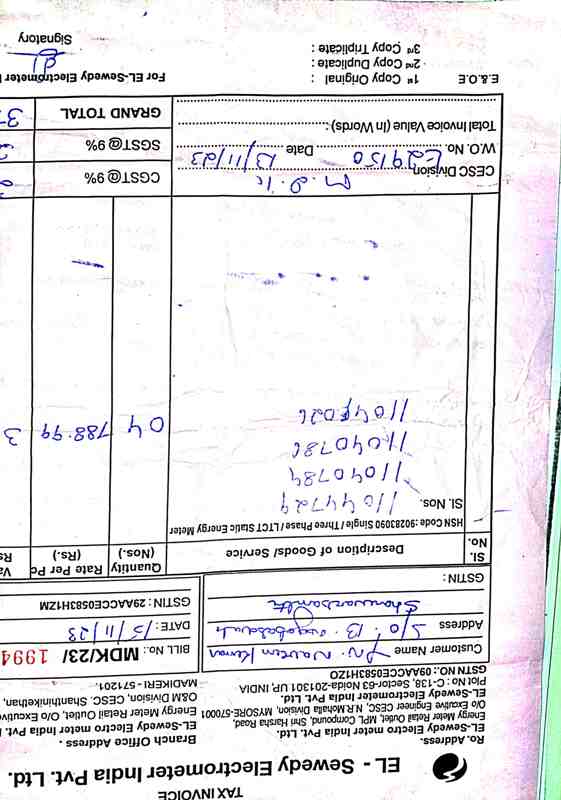 TAX INVOICE
EL - Sewedy Electrometer India Pvt. Ltd.
Ro. Address-
EL-Sewedy Electro meter India Pvt. Ltd.
Energy Meter Retail Outlet, MPL Compound, Shri Harsha Road,
O/o Executive Engineer CESC, N.R.Mohalla Division, MYSORE-570001
EL-Sewedy Electrometer India Pvt. Ltd.
Plot No : C-138, Sector-63 Noida-201301 UP, INDIA
GSTN NO.: 09AACCE0583H1ZO
Branch Office Address -
EL-Sewedy Electro meter India Pvt.
Energy Meter Retail Outlet, O/o Executiv
O&M Division, CESC. Shanthinikethan,
MADIKERI - 571201.
Customer Name Naveen Kumar
Address S/o. B.
GSTIN:
BILL No.: MDK/23/ 1994
DATE: 15/11/23
GSTIN: 29AACCE0583H1ZM
Sl. No. Description of Goods/ Service Quantity (Nos.) Rate Per Pc (Rs.) Va Rs
HSN Code :90283090 Single / Three Phase / LTCT Static Energy Meter
Sl. Nos. 11044729
11040784
11040786
04 788.99 3
CESC Division
W.O. No. E29150 Date 13/11/23
Total Invoice Value (In Words) :
CGST@ 9%
SGST@ 9%
GRAND TOTAL
E.&O.E
1st Copy Original :
2nd Copy Duplicate :
3rd Copy Triplicate :
For EL-Sewedy Electrometer
Signatory